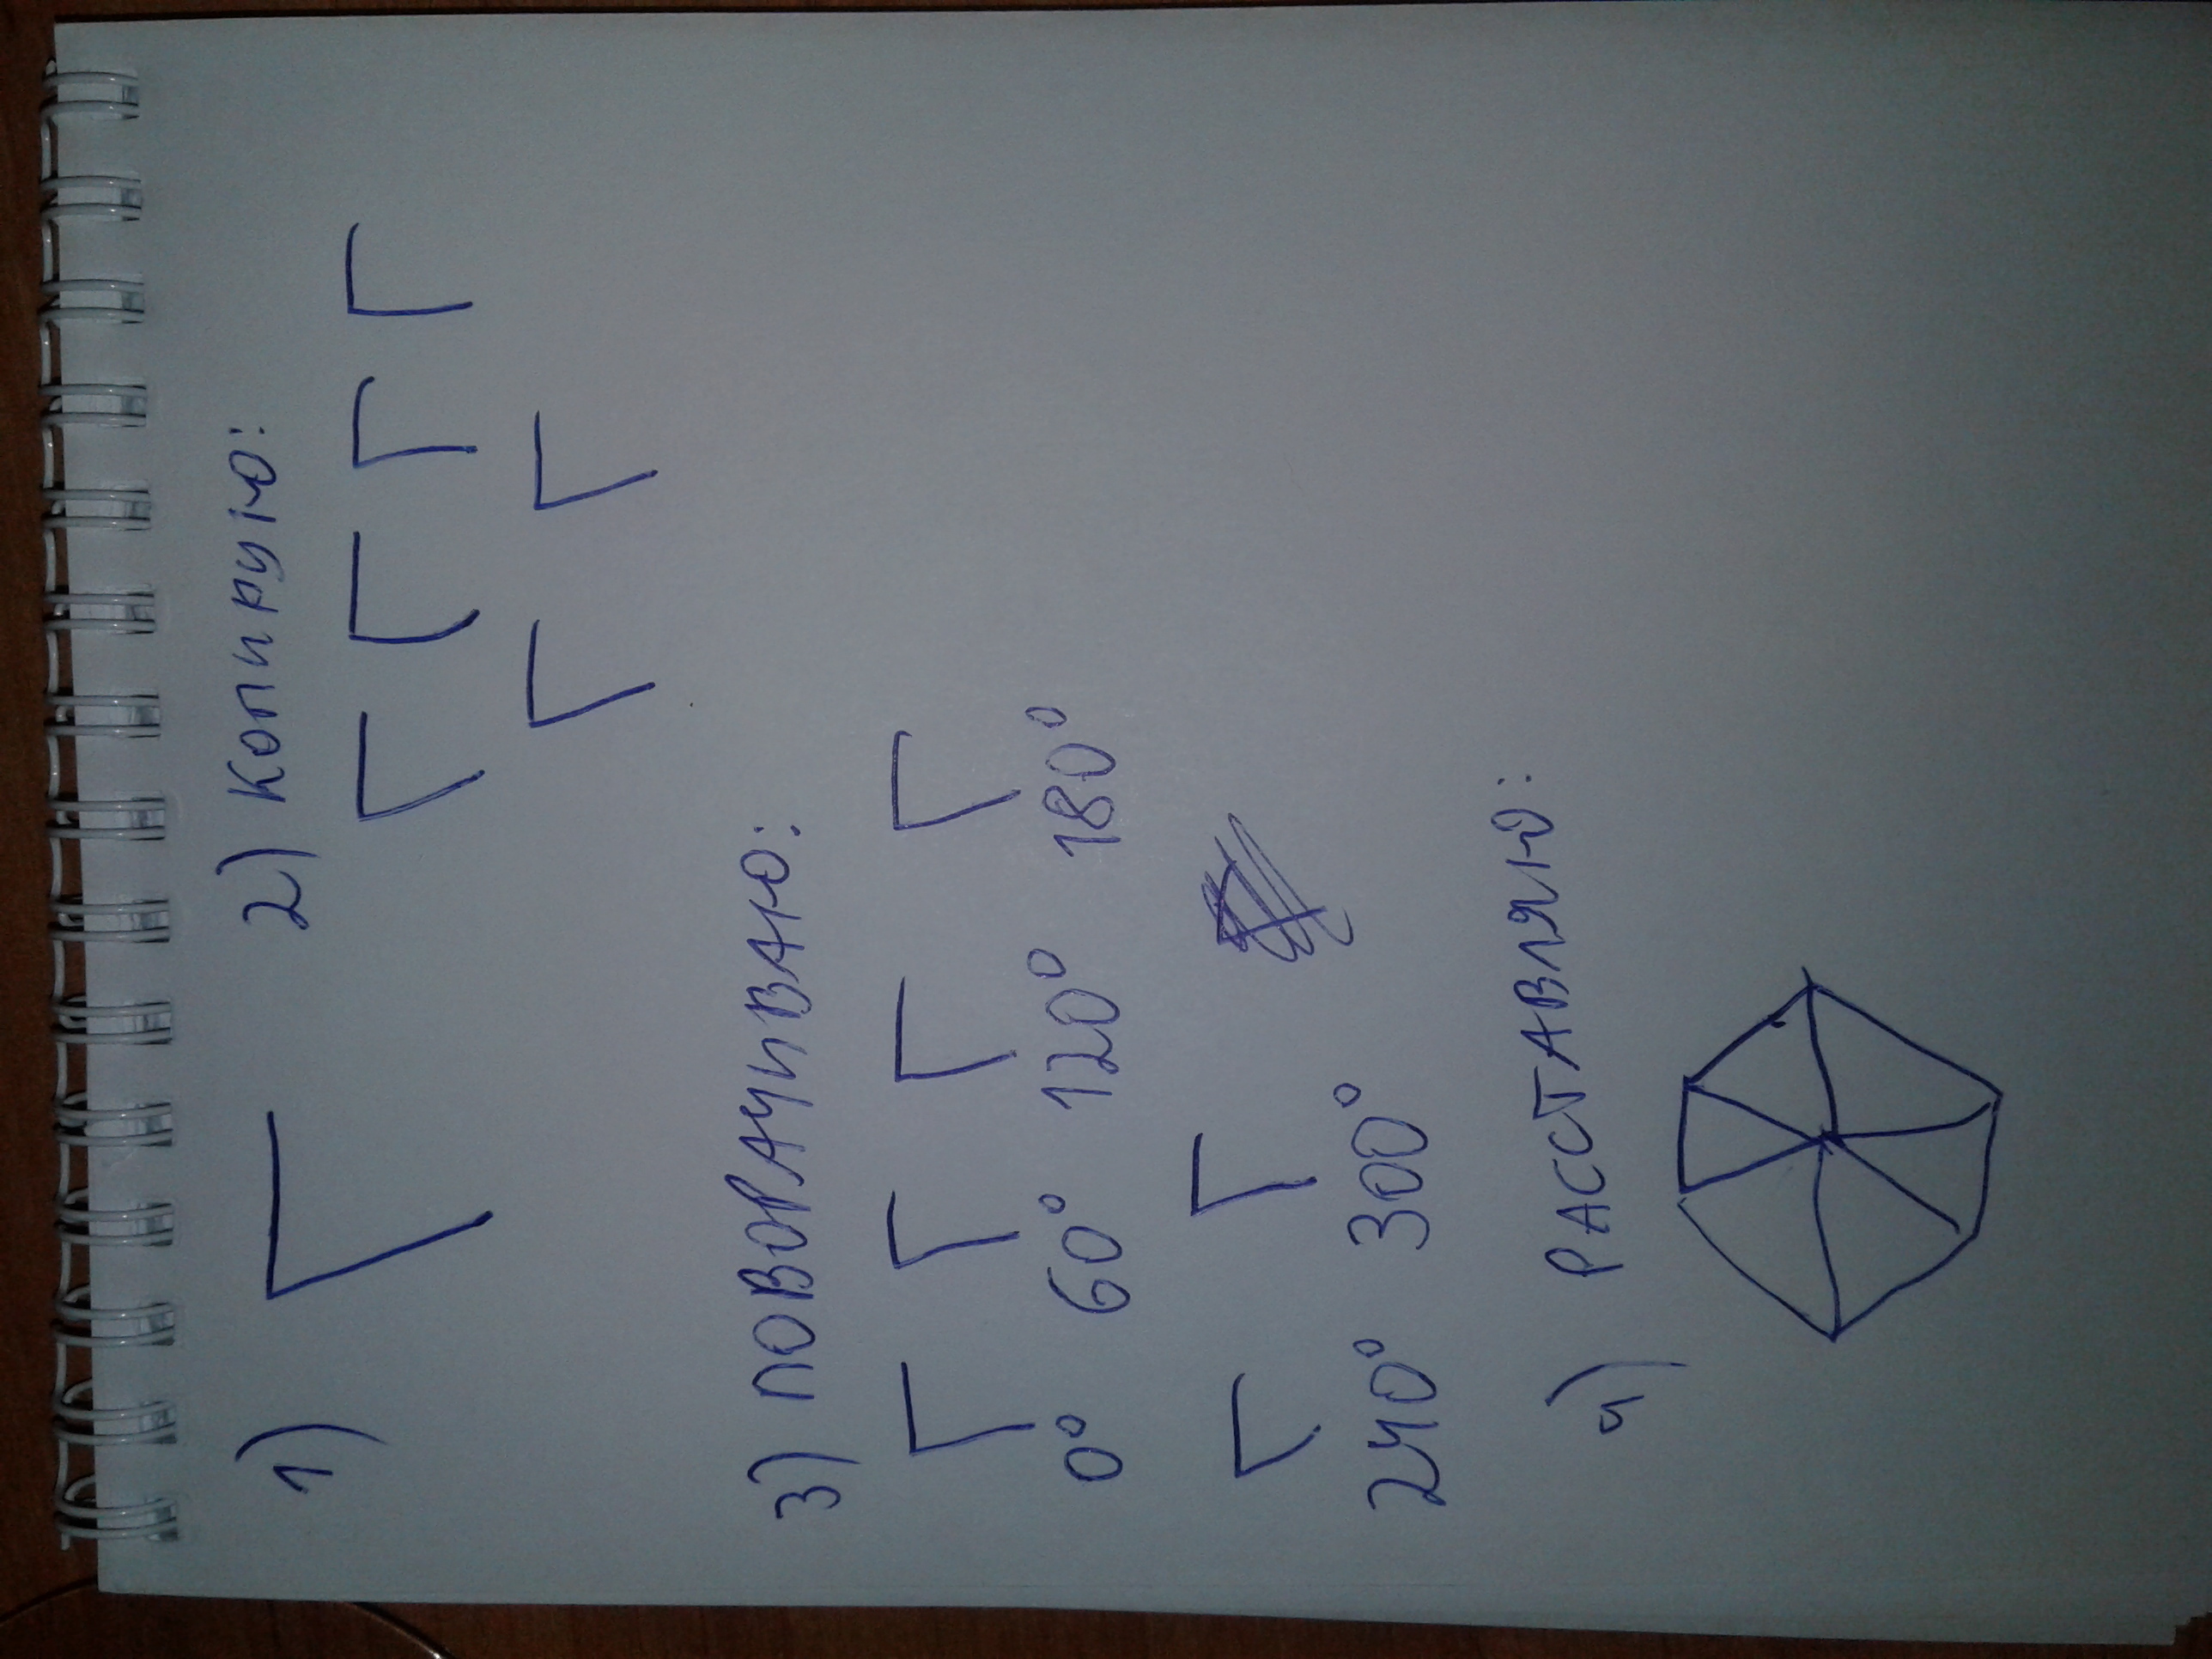 1)
2) копирую:
3) ПОВОРАЧИВАЮ:
0° 60° 120° 180°
240° 300°
4) РАССТАВЛЯЮ: